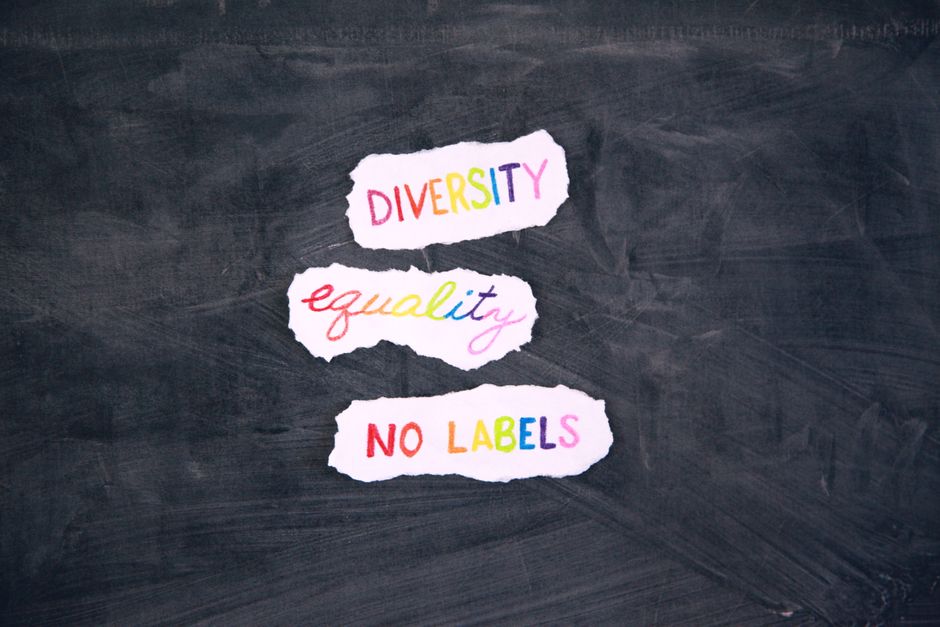 DIVERSITY
equality
NO LABELS